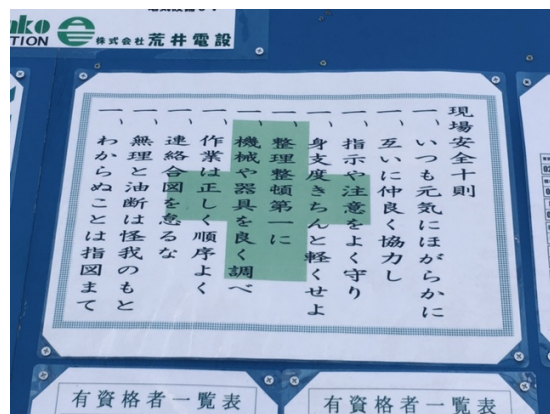 nko
TION
株式会社 荒井電設
現場安全十則
一、いつも元気にほがらかに
一、互いに仲良く協力し
一、指示や注意をよく守り
一、身支度きちんと軽くせよ
一、整理整頓第一に
一、機械や器具を良く調べ
一、作業は正しく順序よく
一、連絡合図を怠るな
一、無理と油断は怪我のもと
一、わからぬことは指図まて
有資格者一覧表
有資格者一覧表